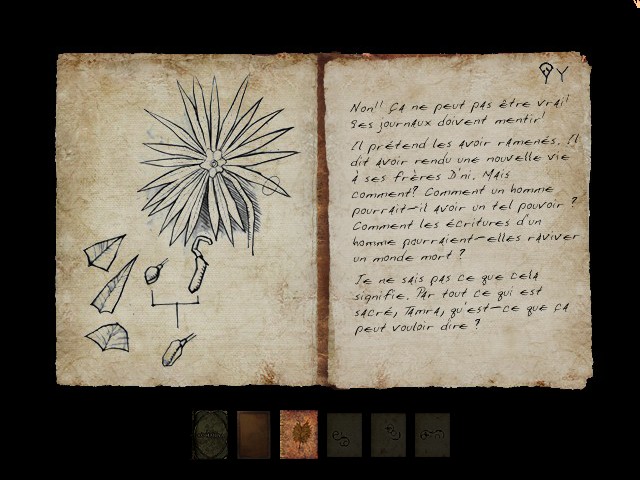 Non!! Ça ne peut pas être vrai!
Ses journaux doivent mentir!
Il prétend les avoir ramenés. Il
dit avoir rendu une nouvelle vie
à ses frères D'ni. Mais
comment? Comment un homme
pourrait-il avoir un tel pouvoir ?
Comment les écritures d'un
homme pourraient-elles raviver
un monde mort ?
Je ne sais pas ce que cela
signifie. Par tout ce qui est
sacré, Tamra, qu'est-ce que ça
peut vouloir dire ?